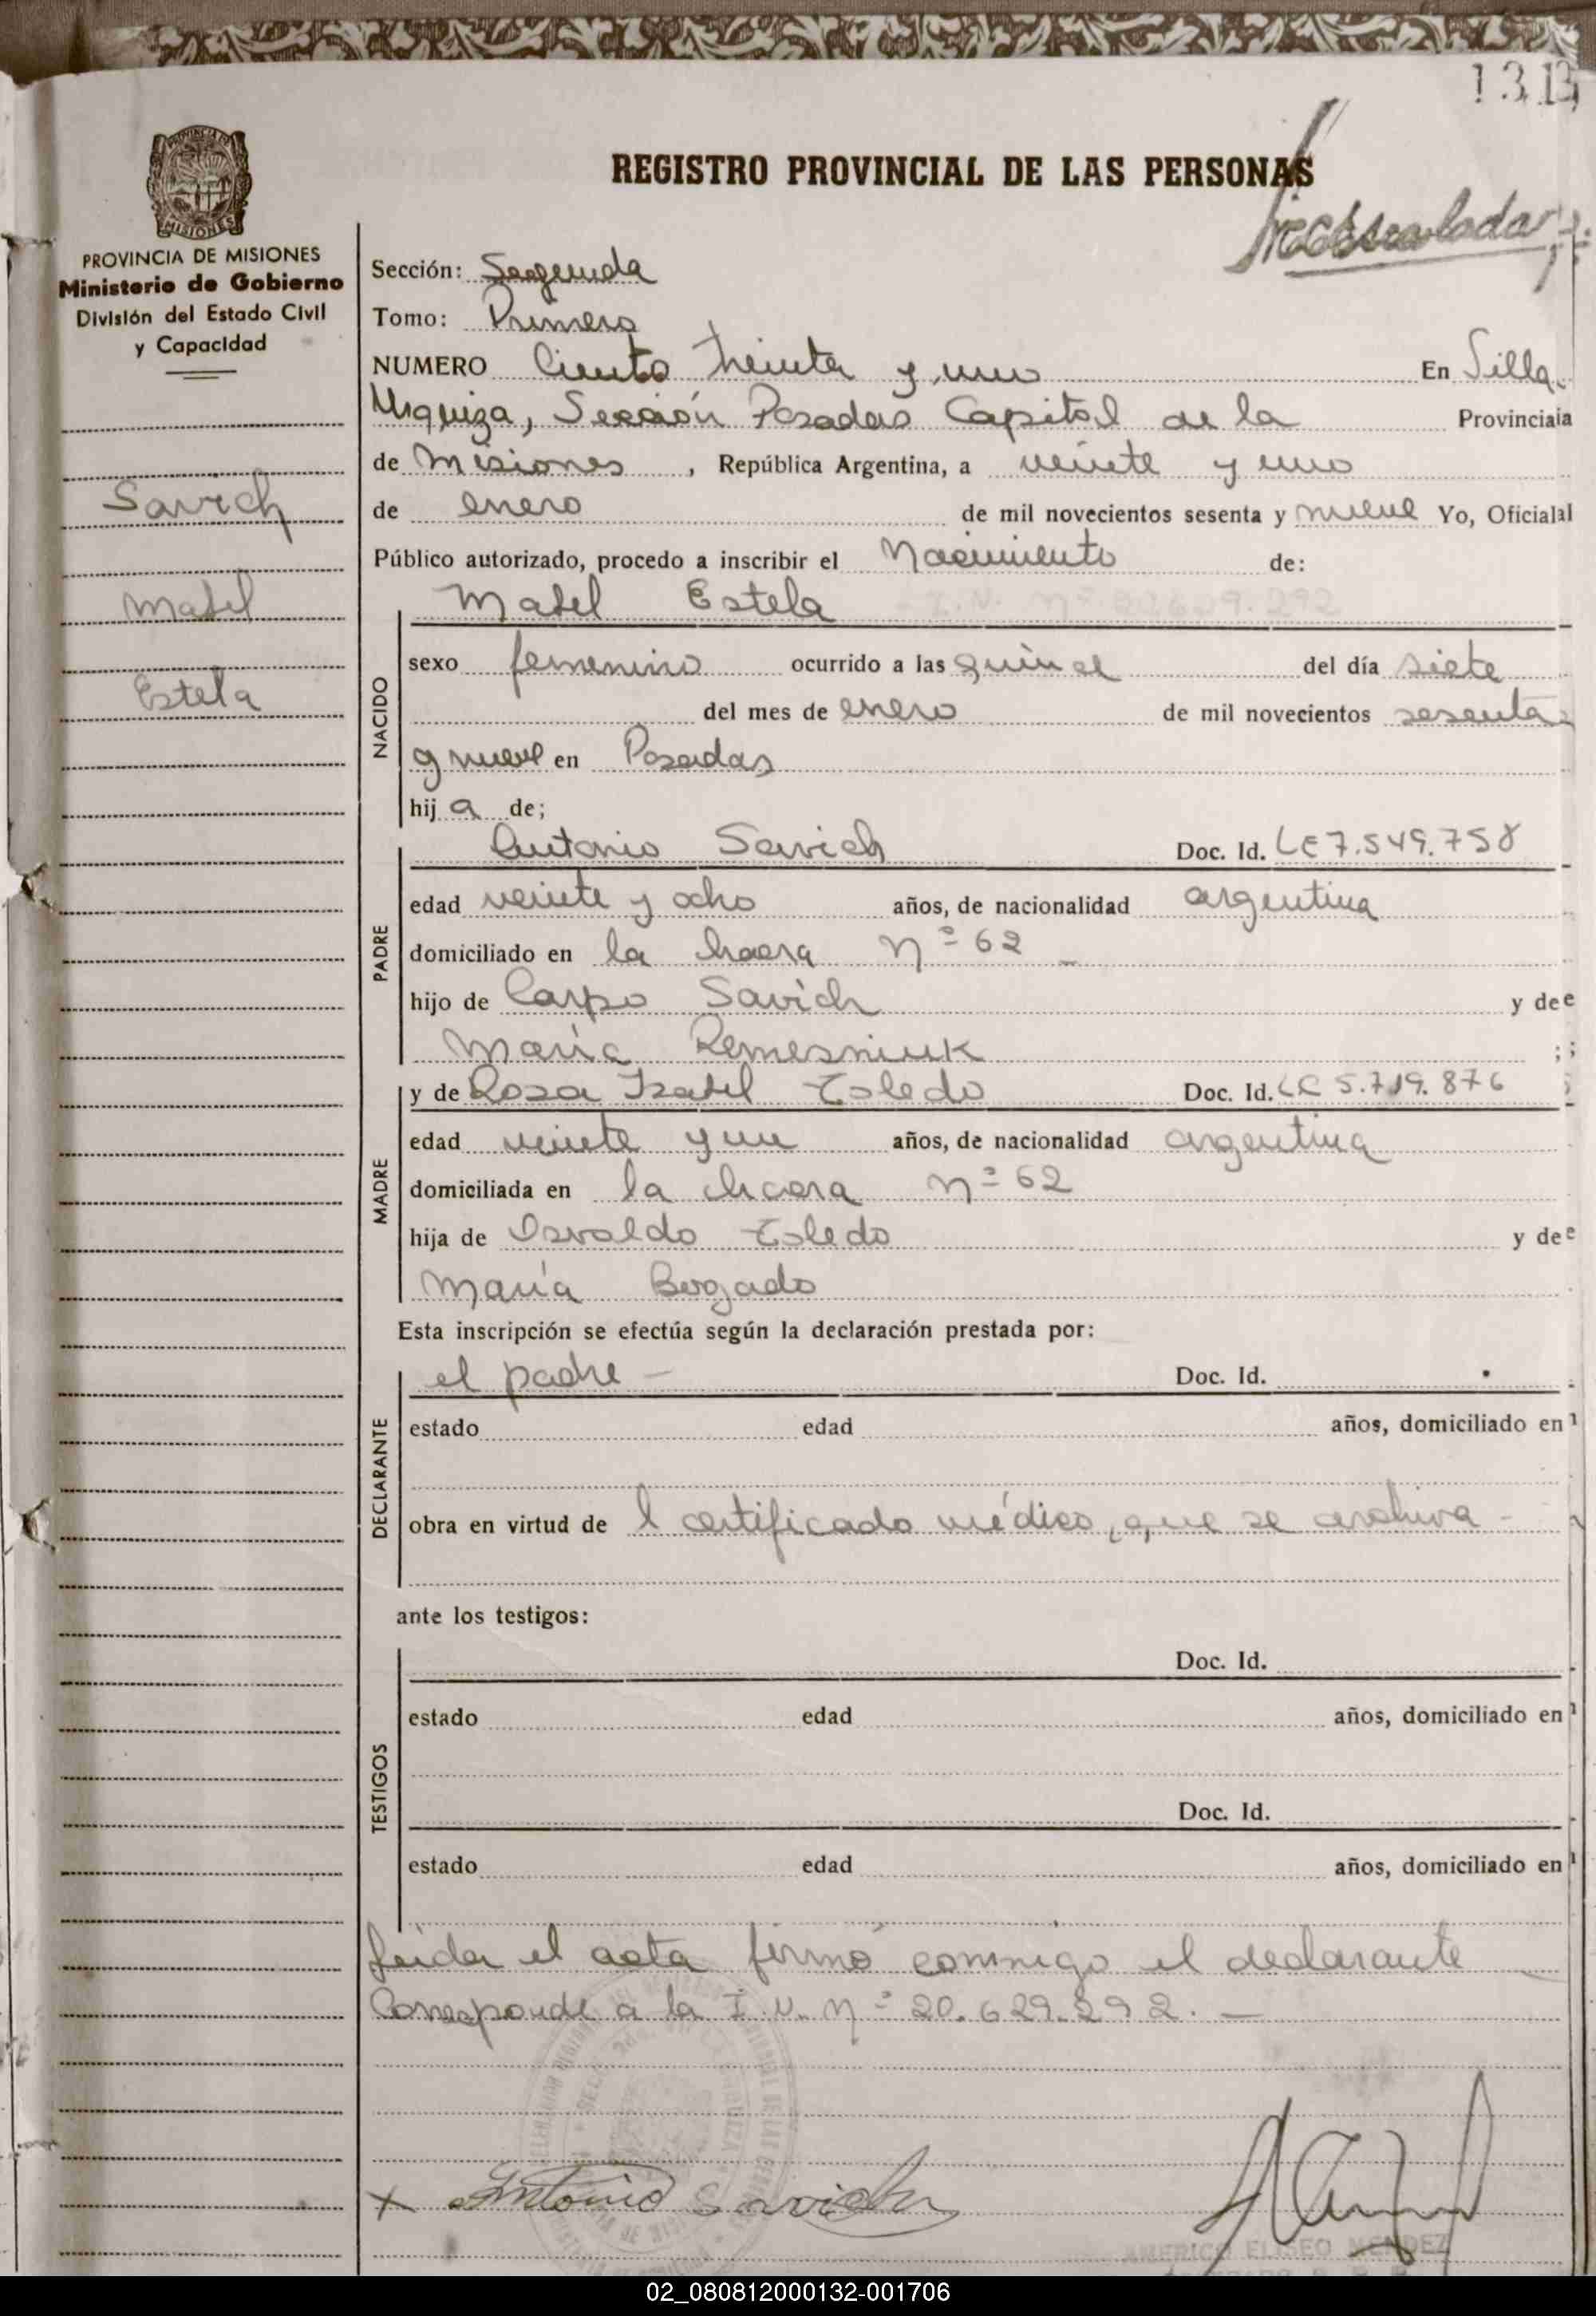 131
REGISTRO PROVINCIAL DE LAS PERSONAS
PROVINCIA DE MISIONES
Ministerio de Gobierno
División del Estado Civil
y Capacidad
Savich
Mabel
Estela
Sección: Segunda
Tomo: Primero
NUMERO Ciento treinta y uno En Villa
Urquiza, Sección Posadas Capital de la Provincia
de Misiones, República Argentina, a veinte y uno
de enero de mil novecientos sesenta y nueve Yo, Oficial
Público autorizado, procedo a inscribir el Nacimiento de:
Mabel Estela
NACIDO
sexo femenino ocurrido a las quince del día siete
del mes de enero de mil novecientos sesenta
y nueve en Posadas
hija de;
Antonio Savich Doc. Id. LE 7.549.758
PADRE
edad veinte y ocho años, de nacionalidad argentina
domiciliado en la chacra Nº 62
hijo de Carpo Savich y de
María Remesniuk
y de Rosa Isabel Toledo Doc. Id. LC 5.719.876
MADRE
edad veinte y un años, de nacionalidad argentina
domiciliada en la chacra Nº 62
hija de Osvaldo Toledo y de
María Bogado
Esta inscripción se efectúa según la declaración prestada por:
el padre — Doc. Id.
DECLARANTE
estado edad años, domiciliado en
obra en virtud del certificado médico, que se archiva -
ante los testigos:
Doc. Id.
TESTIGOS
estado edad años, domiciliado en
Doc. Id.
estado edad años, domiciliado en
Leída el acta firmó conmigo el declarante
Corresponde a la I.N. Nº 20.629.292. —
x Antonio Savich
AMERICO ELISEO MENDEZ
02_080812000132-001706